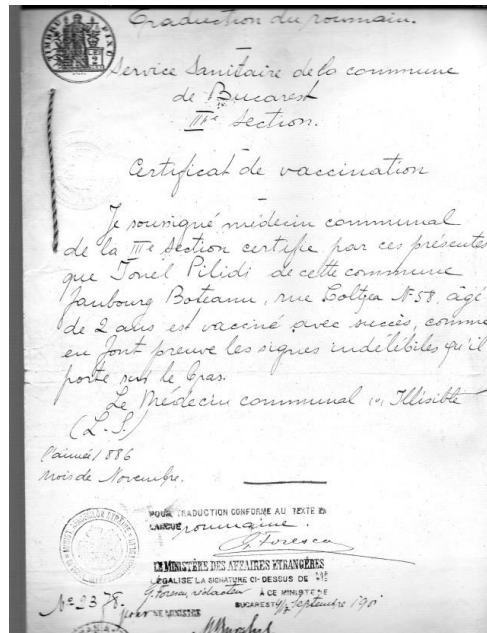 Traduction du roumain.
TIMBRU FIX
Service Sanitaire de la commune
de Bucarest
IIIe Section.
Certificat de vaccination
Je soussigné médecin communal
de la IIIe Section certifie par ces présentes
que Jonel Pilidi de cette commune
faubourg Boteanu, rue Coltzea № 58, âgé
de 2 ans est vacciné avec succès, comme
en font preuve les signes indélébiles qu'il
porte sur le bras.
Le Médecin communal (s) Illisible
(L. S.)
l'année 1886
mois de Novembre.
POUR TRADUCTION CONFORME AU TEXTE EN
LANGUE roumaine.
LE MINISTÈRE DES AFFAIRES ETRANGÈRES
LÉGALISE LA SIGNATURE CI-DESSUS DE
rédacteur À CE MINISTÈRE
№ 2378. BUCAREST Septembre 190
pour LE MINISTRE